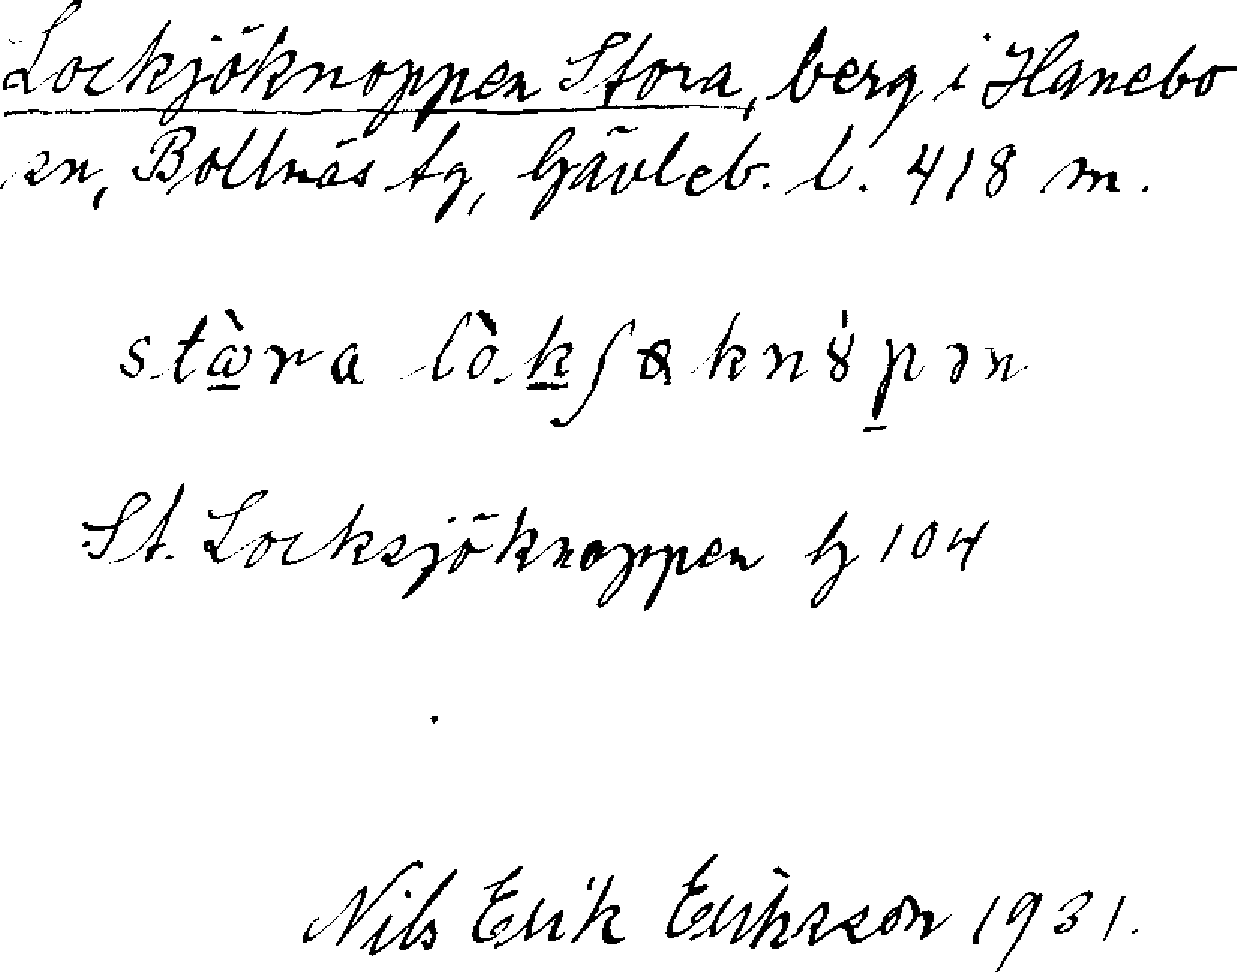 Lockjöknoppen Stora, berg i Hanebo
sn, Bollnäs tg, Gävleb. l. 418 m.
St. Locksjöknoppen h 104
Nils Erik Eriksson 1931.